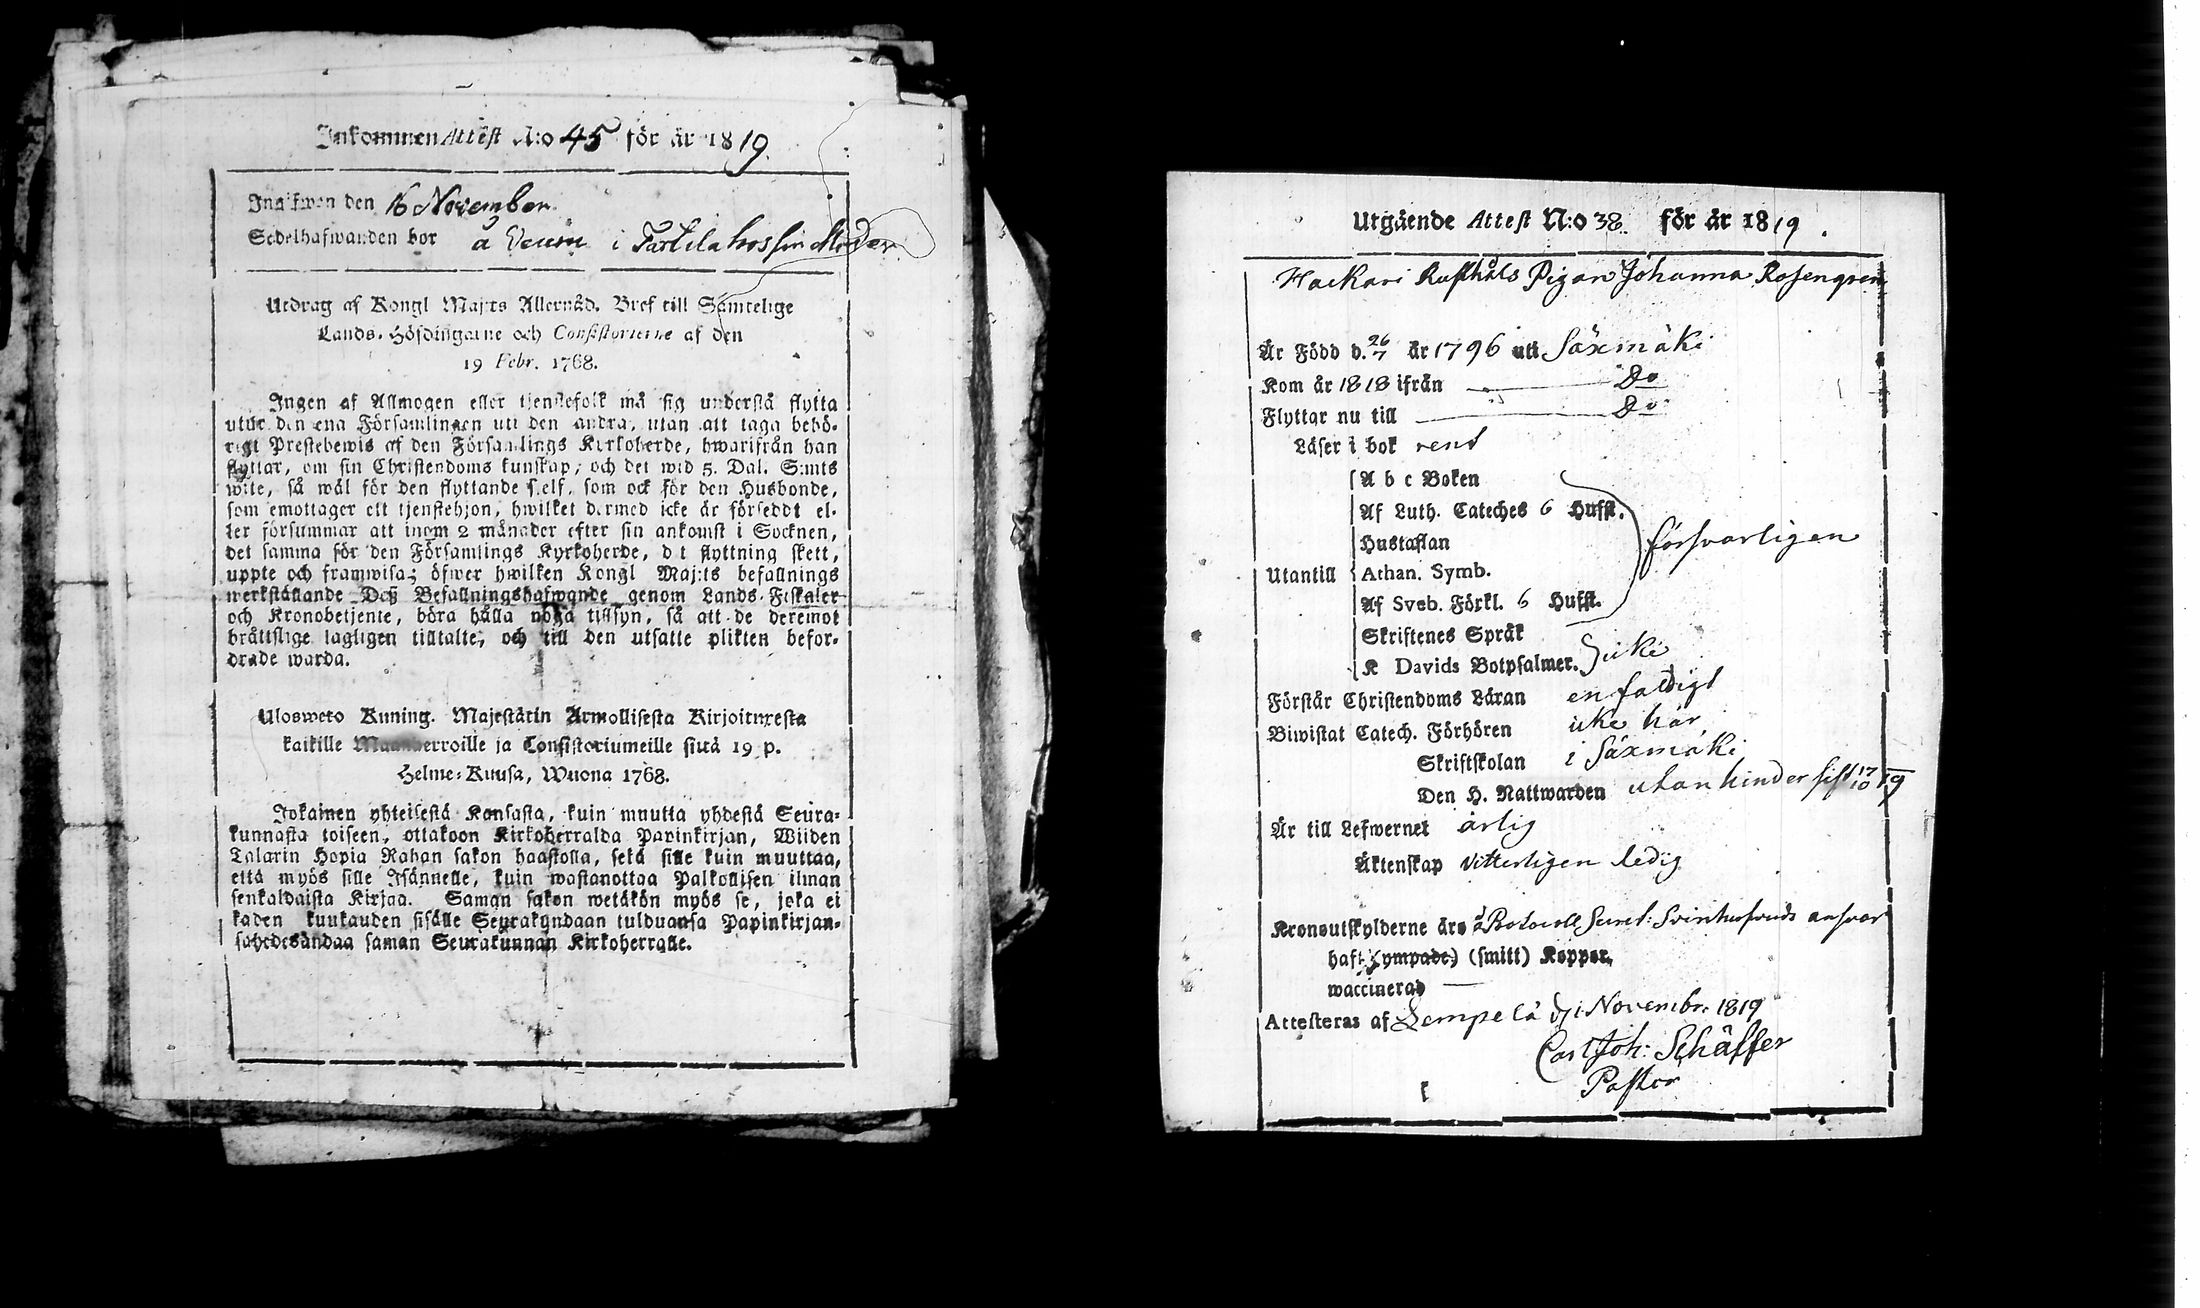 Inkommen Attest N:o 45 för år 1819.
Ingifwen den 16 November
Sedelhafwanden bor å i Tarttila hos sin Moder
Utdrag af Kongl Maj:ts Allernåd. Bref till Samtelige
Lands-Höfdingarne och Consistorierne af den
19 Febr. 1768.
Ingen af Allmogen eller tjenstefolk må sig understå flytta
utur den ena Församlingen uti den andra, utan att taga behö-
rigt Prestebewis af den Församlings Kyrkoherde, hwarifrån han
flyttar, om sin Christendoms kunskap, och det wid 5. Dal. S:mts
wite, så wäl för den flyttande sjelf, som ock för den Husbonde,
som emottager ett tjenstehjon, hwilket dermed icke är försedt el-
ler försummar att inom 2 månader efter sin ankomst i Socknen,
det samma för den Församlings Kyrkoherde, dit flyttning skett,
uppte och framwisa; öfwer hwilken Kongl Maj:ts befallnings
werkställande Deß Befallningshafwande genom Lands-Fiskaler
och Kronobetjente, böra hålla noga tillsyn, så att de deremot
bråttslige lagligen tilltalte, och till den utsatte plikten befor-
drade warda.
Ulosweto Kuning. Majestätin Armollisesta Kirjoituxesta
kaikille Maanherroille ja Consistoriumeille siitä 19 p.
Helme-Kuusa, Wuona 1768.
Jokainen yhteisestä Kansasta, kuin muutta yhdestä Seura-
kunnasta toiseen, ottakoon Kirkoherralda Papinkirjan, Wiiden
Talarin Hopia Rahan sakon haastolla, sekä sille kuin muuttaa,
että myös sille Isännelle, kuin wastanottaa Palkollisen ilman
senkaldaista Kirjaa. Saman sakon wetäkön myös se, joka ei
kaden kuukauden sisälle Seurakundaan tulduansa Papinkirjan-
sa saman Seurakunnan Kirkoherralle.
Utgående Attest N:o 38. för år 1819.
Hackari Rusthåls Pigan Johanna Rosengren
Är Född d. 26/7 år 1796 uti Säxmäki
Kom år 1818 ifrån Do
Flyttar nu till Do
Läser i bok rent
A b c Boken
Af Luth. Cateches 6 Hufst.
Hustaflan
försvarligen
Utantill Athan. Symb.
Af Sveb. Förkl. 6 Hufst.
Skriftenes Språk
K Davids Botpsalmer. icke
Förstår Christendoms Läran enfaldigt
Biwistat Catech. Förhören icke här
Skriftskolan i Säxmäki
Den H. Nattwarden utan hinder sist 17/10 19
Är till Lefwernet ärlig
Äktenskap vitterligen ledig
Kronoutskylderne äro Svinhufvuds ansvar
haft (ympade) (smitt) Koppor,
waccinerad —
Attesteras af Lempelä d. 1 Novembr. 1819
Carl Joh: Schäffer
Pastor